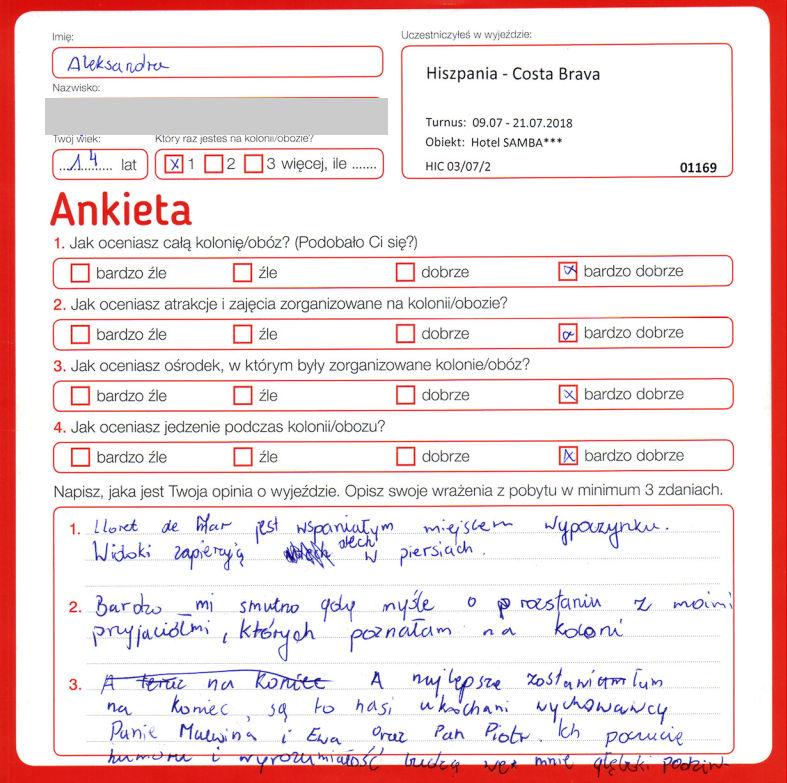 Imię:
Aleksandra
Nazwisko:
Twój wiek:
14 lat
Który raz jesteś na kolonii/obozie?
x 1 2 3 więcej, ile .......
Uczestniczyłeś w wyjeździe:
Hiszpania - Costa Brava
Turnus: 09.07 - 21.07.2018
Obiekt: Hotel SAMBA***
HIC 03/07/2 01169
Ankieta
1. Jak oceniasz całą kolonię/obóz? (Podobało Ci się?)
bardzo źle źle dobrze x bardzo dobrze
2. Jak oceniasz atrakcje i zajęcia zorganizowane na kolonii/obozie?
bardzo źle źle dobrze x bardzo dobrze
3. Jak oceniasz ośrodek, w którym były zorganizowane kolonie/obóz?
bardzo źle źle dobrze x bardzo dobrze
4. Jak oceniasz jedzenie podczas kolonii/obozu?
bardzo źle źle dobrze x bardzo dobrze
Napisz, jaka jest Twoja opinia o wyjeździe. Opisz swoje wrażenia z pobytu w minimum 3 zdaniach.
1. Lloret de Mar jest wspaniałym miejscem wypoczynku.
Widoki zapierają dech w piersiach.
2. Bardzo mi smutno gdy myśle o rozstaniu z moimi
przyjaciółmi, których poznałam na koloni
3. A teraz na koniec A najlepsze zostawiam
na koniec, są to nasi ukochani wychowawcy
Panie Malwina i Ewa oraz Pan Piotr. Ich poczucie
humoru i wyrozumiałość budzą we mnie głęboki podziw